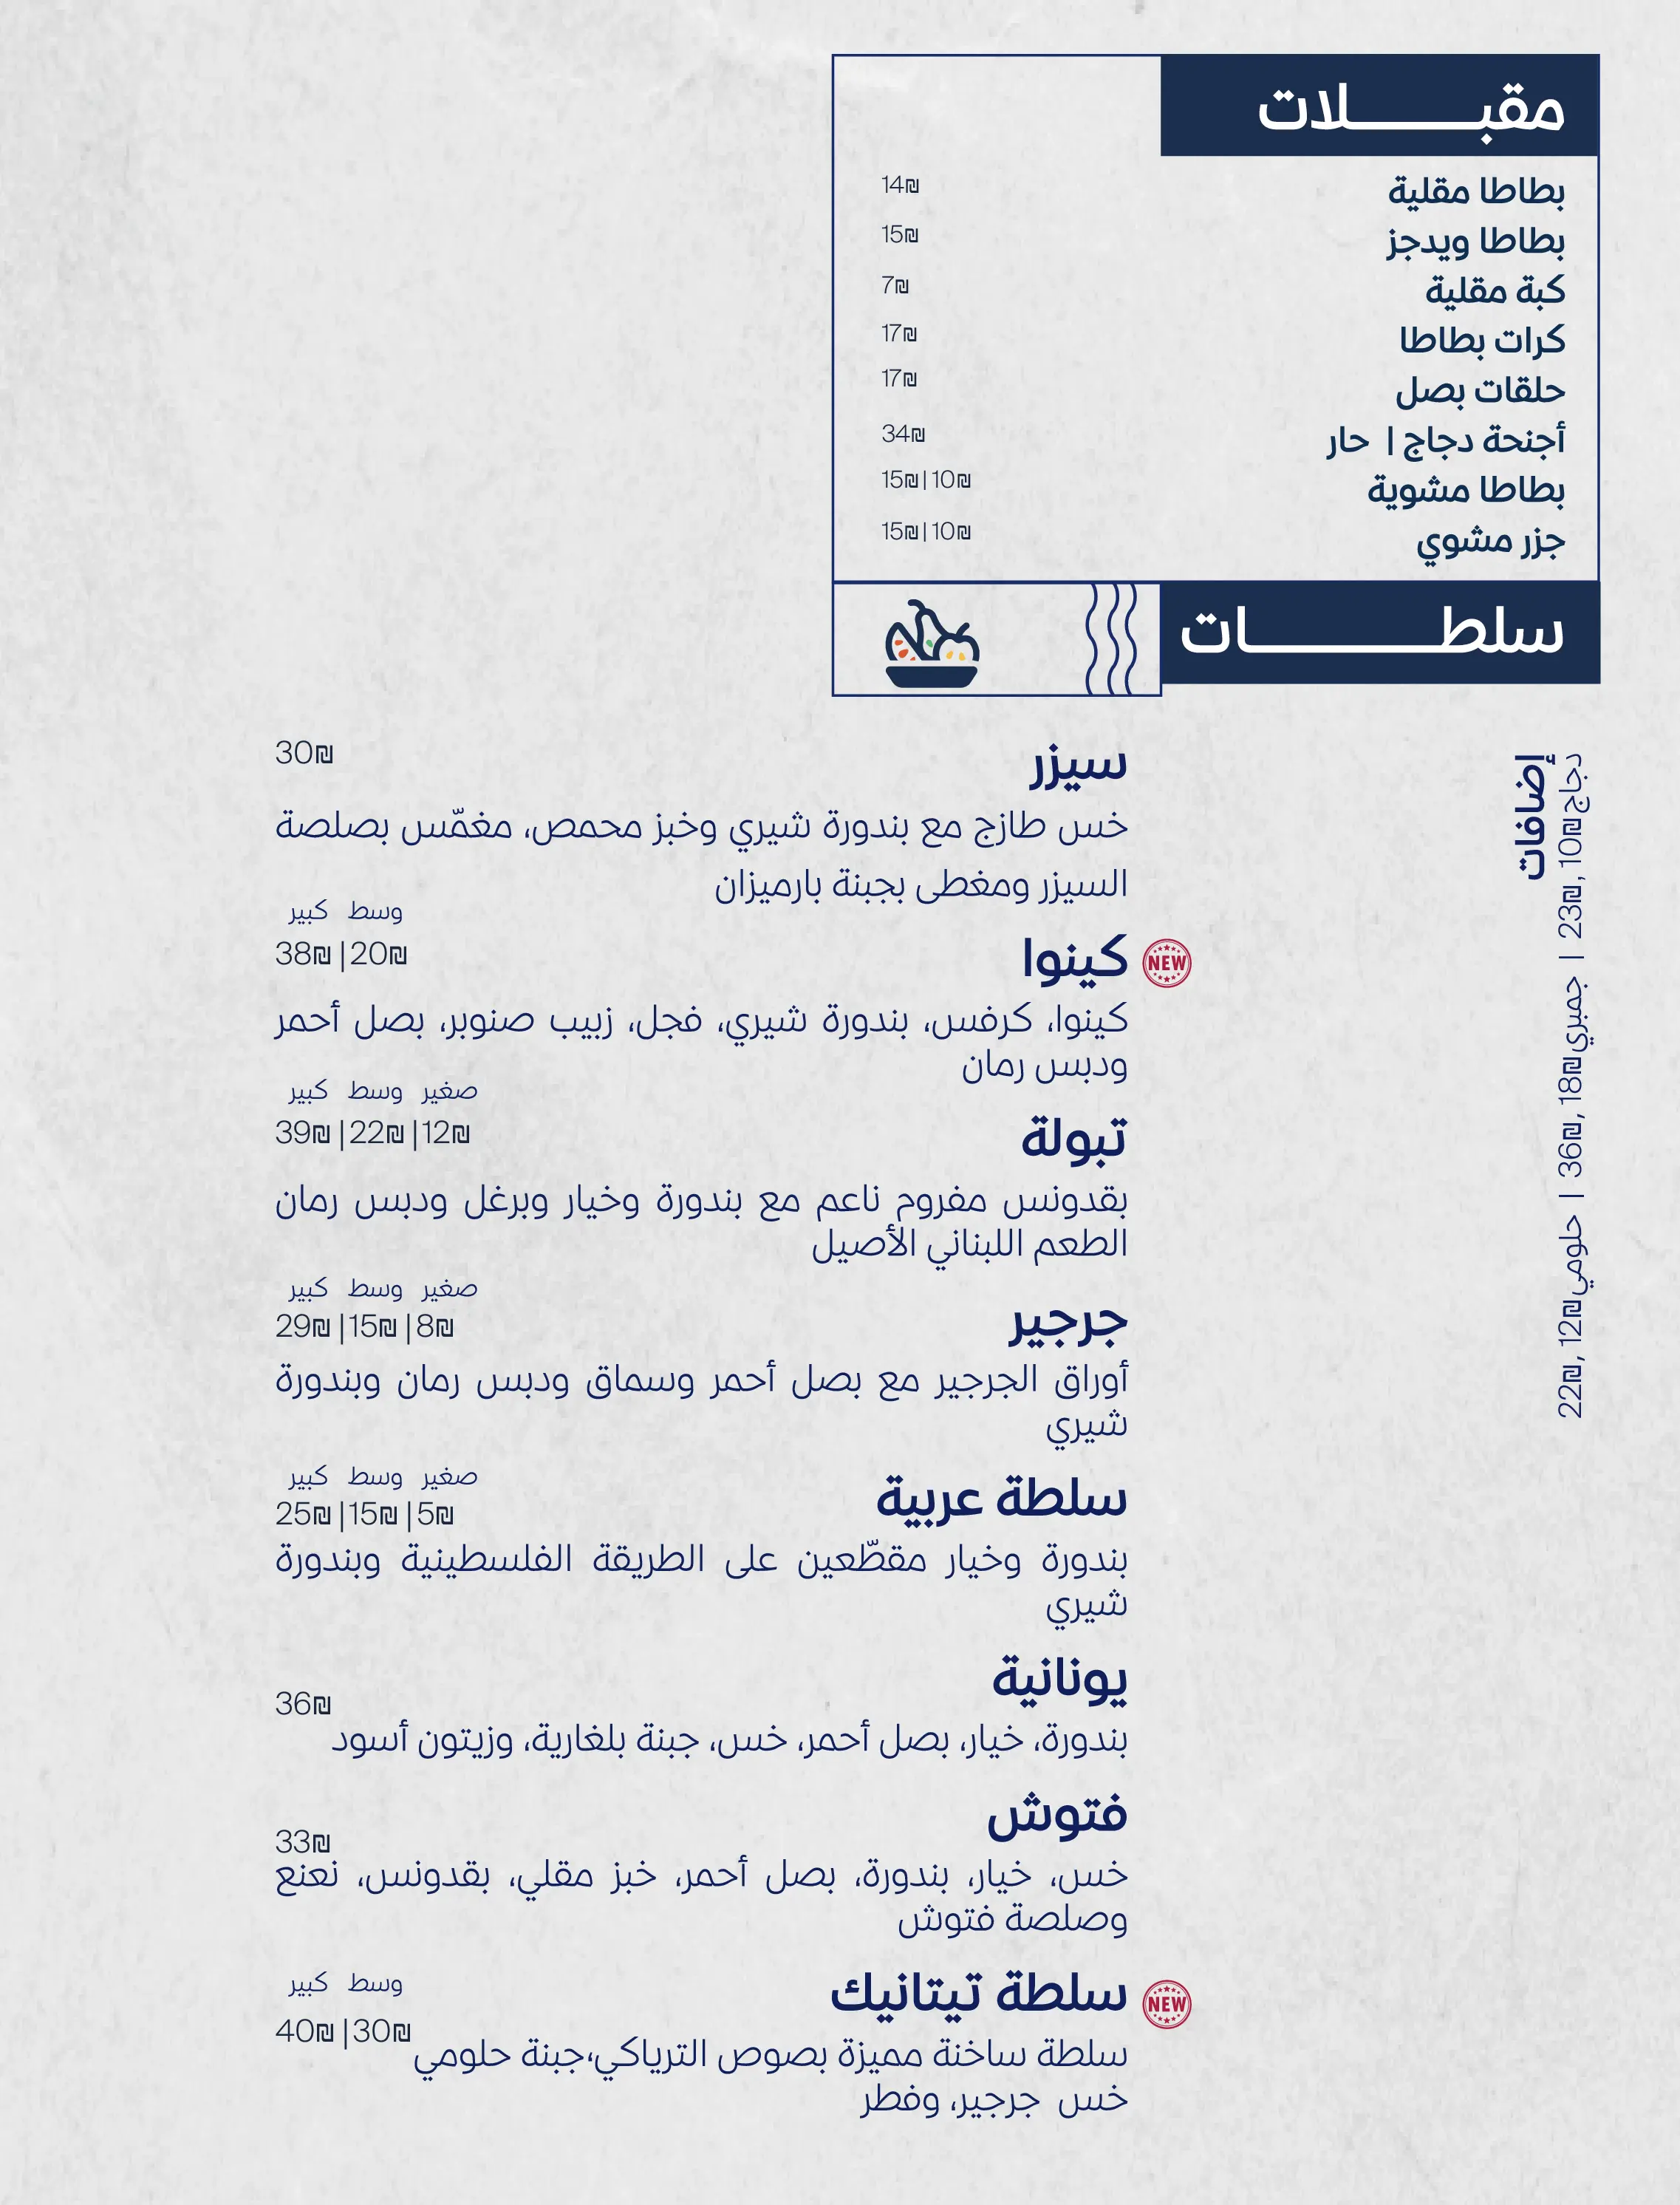 مقبـــــلات
بطاطا مقلية 14₪
بطاطا ويدجز 15₪
كبة مقلية 7₪
كرات بطاطا 17₪
حلقات بصل 17₪
أجنحة دجاج | حار 34₪
بطاطا مشوية 15₪|10₪
جزر مشوي 15₪|10₪
سلطـــــــات
إضافات
دجاج 10₪, 23₪ | جمبري 18₪, 36₪ | حلومي 12₪, 22₪
سيزر 30₪
خس طازج مع بندورة شيري وخبز محمص، مغمّس بصلصة
السيزر ومغطى بجبنة بارميزان
وسط كبير
NEW كينوا 38₪ |20₪
كينوا، كرفس، بندورة شيري، فجل، زبيب صنوبر، بصل أحمر
ودبس رمان
صغير وسط كبير
تبولة 39₪ |22₪ |12₪
بقدونس مفروم ناعم مع بندورة وخيار وبرغل ودبس رمان
الطعم اللبناني الأصيل
صغير وسط كبير
جرجير 29₪ |15₪ |8₪
أوراق الجرجير مع بصل أحمر وسماق ودبس رمان وبندورة
شيري
صغير وسط كبير
سلطة عربية 25₪ |15₪ |5₪
بندورة وخيار مقطّعين على الطريقة الفلسطينية وبندورة
شيري
يونانية 36₪
بندورة، خيار، بصل أحمر، خس، جبنة بلغارية، وزيتون أسود
فتوش 33₪
خس، خيار، بندورة، بصل أحمر، خبز مقلي، بقدونس، نعنع
وصلصة فتوش
وسط كبير
NEW سلطة تيتانيك 40₪ |30₪
سلطة ساخنة مميزة بصوص الترياكي،جبنة حلومي
خس جرجير، وفطر